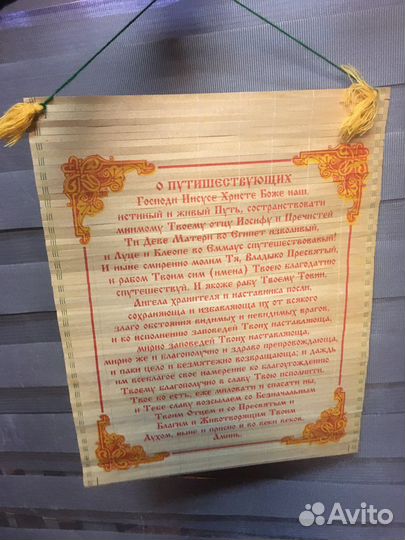 О ПУТИШЕСТВУЮЩИХ
Господи Иисусе Христе Боже наш,
истиный и живый Путь, состранствовати
мнимому Твоему отцу Иосифу и Пречистей
Ти Деве Матери во Египет изволивый,
и Луце и Клеопе во Еммаус спутешествовавый!
И ныне смиренно молим Тя, Владыко Пресвятый,
и рабом Твоим сим (имена) Твоею благодатию
спутешествуй. И якоже рабу Твоему Товии,
Ангела хранителя и наставника посли,
сохраняюща и избавляюща их от всякого
злаго обстояния видимых и невидимых врагов,
и ко исполнению заповедей Твоих наставляюща,
мирно заповедей Твоих наставляюща,
мирно же и благополучно и здраво препровождающа,
и паки цело и безмятежно возвращающа; и даждь
им всеблагое свое намерение ко благоугождению
Твоему благополучно в славу Твою исполнити.
Твое бо есть, еже миловати и спасати ны,
и Тебе славу возсылаем со Безначальным
Твоим Отцем и со Пресвятым и
Благим и Животворящим Твоим
Духом, ныне и присно и во веки веков.
Аминь.
Avito